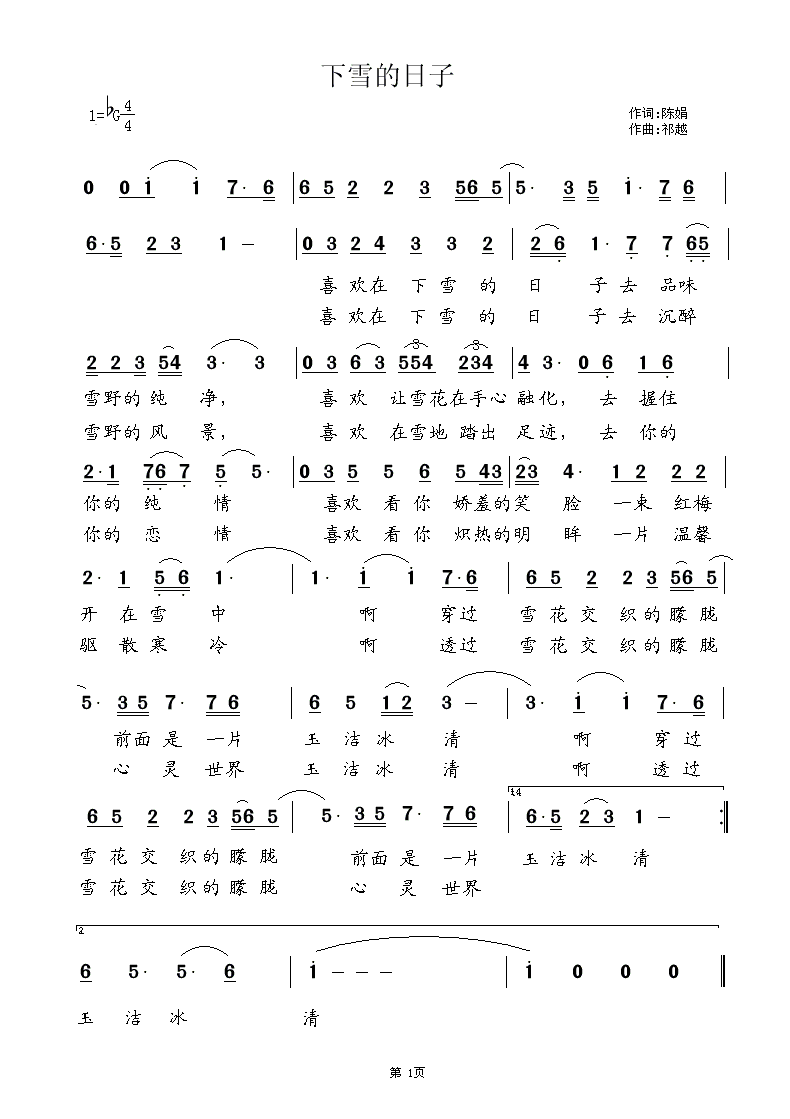 下雪的日子
1=♭G 4/4
作词:陈娟
作曲:祁越
0 0 i i 7· 6 | 6 5 2 2 3 56 5 | 5· 3 5 i· 7 6
6·5 2 3 1 — | 0 3 2 4 3 3 2 | 2 6 1· 7 7 65
喜欢在下雪的日子去品味
喜欢在下雪的日子去沉醉
2 2 3 54 3· 3 | 0 3 6 3 554 234 | 4 3· 0 6 1 6
3 3
雪野的纯净, 喜欢让雪花在手心融化, 去握住
雪野的风景, 喜欢在雪地踏出足迹, 去你的
2·1 76 7 5 5· | 0 3 5 5 6 5 43 | 23 4· 1 2 2 2
你的纯情 喜欢看你娇羞的笑脸一束红梅
你的恋情 喜欢看你炽热的明眸一片温馨
2· 1 5 6 1· | 1· i i 7·6 | 6 5 2 2 3 56 5
开在雪中 啊穿过雪花交织的朦胧
驱散寒冷 啊透过雪花交织的朦胧
5· 3 5 7· 7 6 | 6 5 1 2 3 — | 3· i i 7· 6
前面是一片玉洁冰清 啊穿过
心灵世界玉洁冰清 啊透过
14
6 5 2 2 3 56 5 | 5· 3 5 7· 7 6 | 6·5 2 3 1 — :||
雪花交织的朦胧 前面是一片玉洁冰清
雪花交织的朦胧 心灵世界
2
6 5· 5· 6 | i — — — | i 0 0 0 ||
玉洁冰清
第 1页